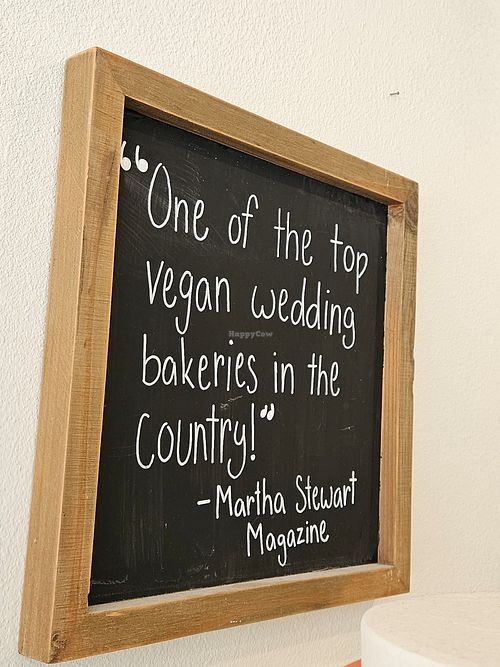 “One of the top
vegan wedding
bakeries in the
Country!”
-Martha Stewart
Magazine
HappyCow